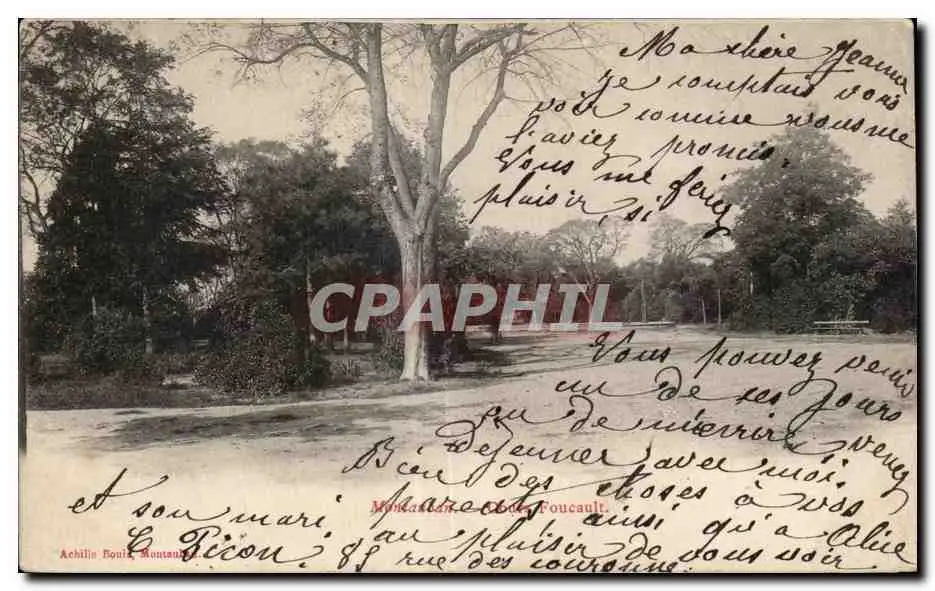 Ma chère Jeanne
Je comptais vous
voir comme vous me
l'aviez promis
vous me feriez
plaisir, si
CPAPHIL
Vous pouvez venir
un de ses jours
ou de m'écrire venez
déjeuner avec moi.
Bien des choses à vos
parents ainsi qu'a Alice
et son mari au plaisir de vous voir
C Picon. 85 rue des couronne.
Montauban. — Cours Foucault.
Achille Bouis, Montauban.